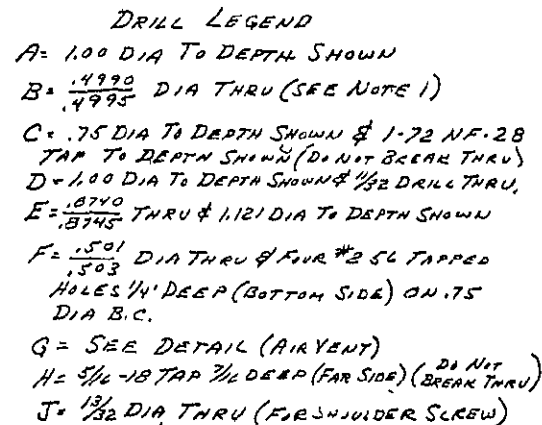 DRILL LEGEND
A= 1.00 DIA TO DEPTH SHOWN
B= .4990/.4995 DIA THRU (SEE NOTE 1)
C= .75 DIA TO DEPTH SHOWN & 1-72 NF-28
TAP TO DEPTH SHOWN (DO NOT BREAK THRU)
D= 1.00 DIA TO DEPTH SHOWN & 11/32 DRILL THRU.
E= .8740/.8745 THRU & 1.121 DIA TO DEPTH SHOWN
F= .501/.503 DIA THRU & FOUR #2 56 TAPPED
HOLES 1/4" DEEP (BOTTOM SIDE) ON .75
DIA B.C.
G= SEE DETAIL (AIR VENT)
H= 5/16-18 TAP 7/16 DEEP (FAR SIDE) (DO NOT BREAK THRU)
J= 13/32 DIA THRU (FOR SHOULDER SCREW)